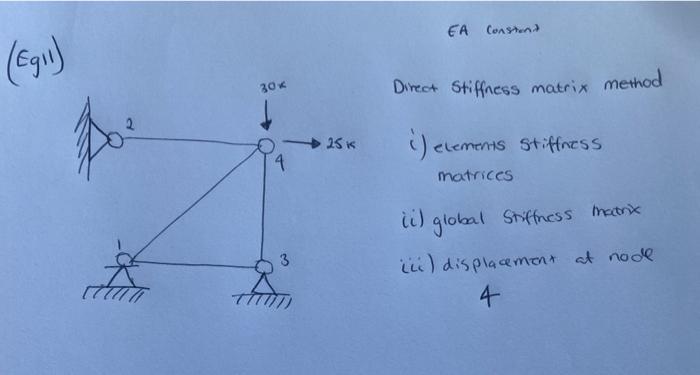 (Eg11)
EA Constant
Direct Stiffness matrix method
i) elements Stiffness
matrices
ii) global Stiffness matrix
iii) displacement at node
4
30K
2
25K
4
1
3